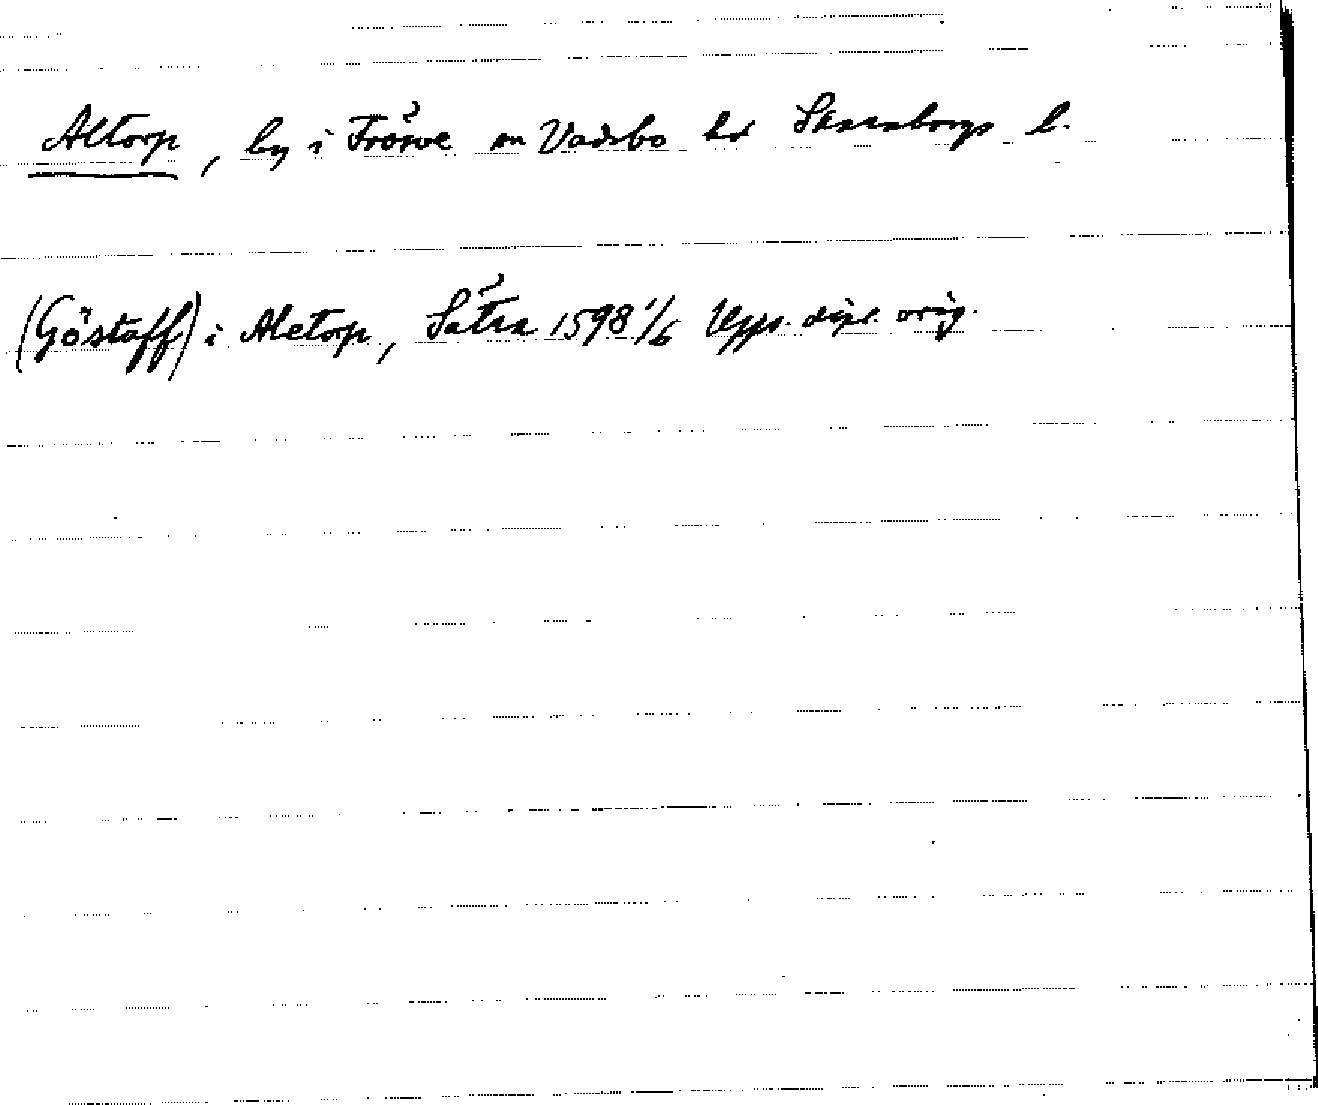 Altorp, by i Fröjve sn Vadsbo hd Skaraborgs l.
(Göstaff) i Aletorp, Sätra 1598 1/6 Upps. dipl. orig.